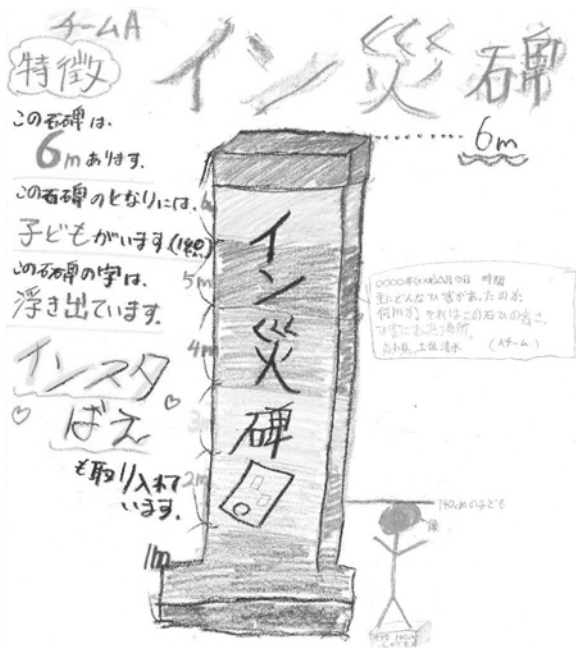 チームA
イン災碑
特徴
6m
この石碑は、
6mあります。
この石碑のとなりには、
子どもがいます。
この石碑の字は、
浮き出ています。
インスタ
ばえ
も取り入れて
います。
6
5m
4m
3m
2m
1m
イン災碑
主にどんなひ害があったのか
何mか、それはこの石ひの高さ。
ひ害にあった場所。
高知県 土佐清水
(Aチーム)
140cmの子ども
像